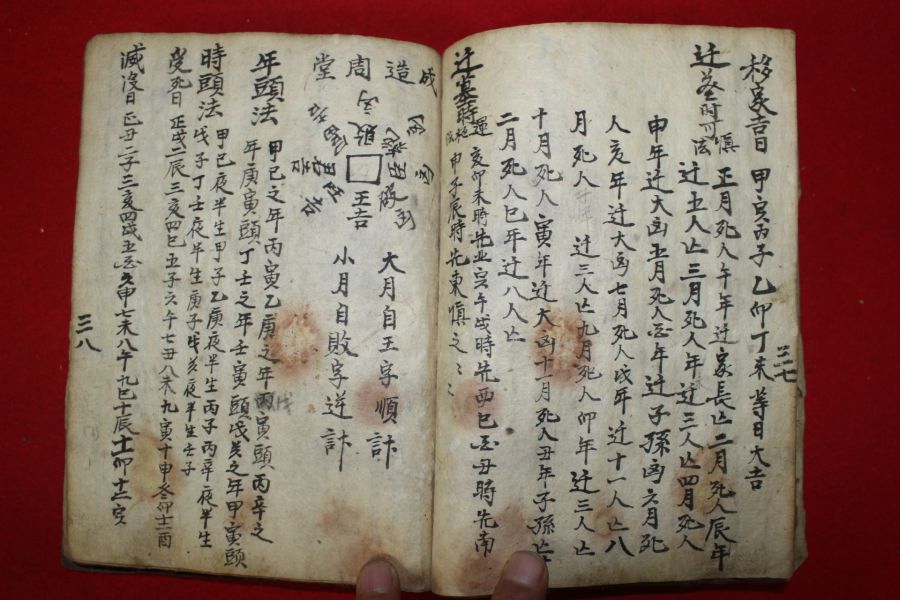 移家吉日 甲寅丙子乙卯丁未等日大吉
三七
迁墓時可愼法 正月死人午年迁家長亡二月死人辰年
迁五人亡三月死人年迁三人亡四月死人
申年迁大凶五月死人年迁子孫凶六月死
人亥年迁大凶七月死人戌年迁十一人亡八
月死人 迁三人亡九月死人卯年迁三人亡
十月死人寅年迁大凶十一月死人丑年子孫亡
二月死人巳年迁八人亡
迁墓時還
亥卯未時先 寅午戌時先西巳酉丑時先南
申子辰時先東愼之
成造周堂
大月自王字順計
小月自敗字逆計
王吉
敗
年頭法 甲己之年丙寅乙庚之年 寅頭丙辛之
年庚寅頭丁壬之年壬寅頭戊癸之年甲寅頭
時頭法 甲己夜半生甲子乙庚夜半生丙子丙辛夜半生
戊子丁壬夜半生庚子戊癸夜半生壬子
受死日 正戌二辰三亥四巳五子六午七丑八未九寅十申 卯 酉
滅没日 正丑二子三亥四戌五酉六申七未八午九巳十辰 卯 寅
三八